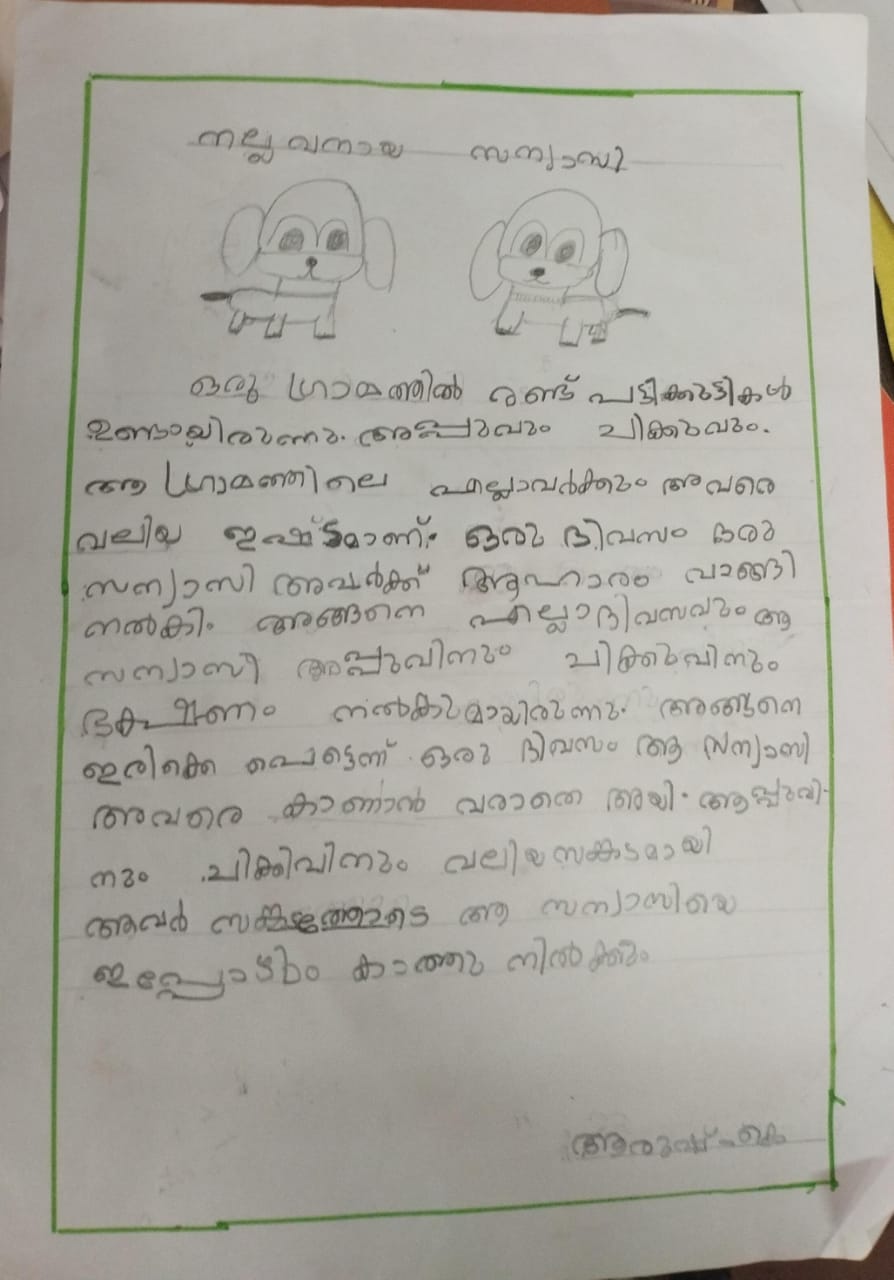 നല്ലവനായ സന്യാസി
ഒരു ഗ്രാമത്തിൽ രണ്ട് പട്ടിക്കുട്ടികൾ
ഉണ്ടായിരുന്നു. അപ്പുവും ചിക്കുവും.
ആ ഗ്രാമത്തിലെ എല്ലാവർക്കും അവരെ
വലിയ ഇഷ്ടമാണ്. ഒരു ദിവസം ഒരു
സന്യാസി അവർക്ക് ആഹാരം വാങ്ങി
നൽകി. അങ്ങനെ എല്ലാദിവസവും ആ
സന്യാസി അപ്പുവിനും ചിക്കുവിനും
ഭക്ഷണം നൽകുമായിരുന്നു. അങ്ങനെ
ഇരിക്കെ പെട്ടെന്ന് ഒരു ദിവസം ആ സന്യാസി
അവരെ കാണാൻ വരാതെ ആയി. അപ്പുവി-
നും ചിക്കിവിനും വലിയ സങ്കടമായി
അവർ സങ്കടത്തോടെ ആ സന്യാസിയെ
ഇപ്പോഴും കാത്തു നിൽക്കും